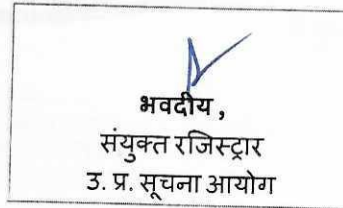 भवदीय,
संयुक्त रजिस्ट्रार
उ. प्र. सूचना आयोग